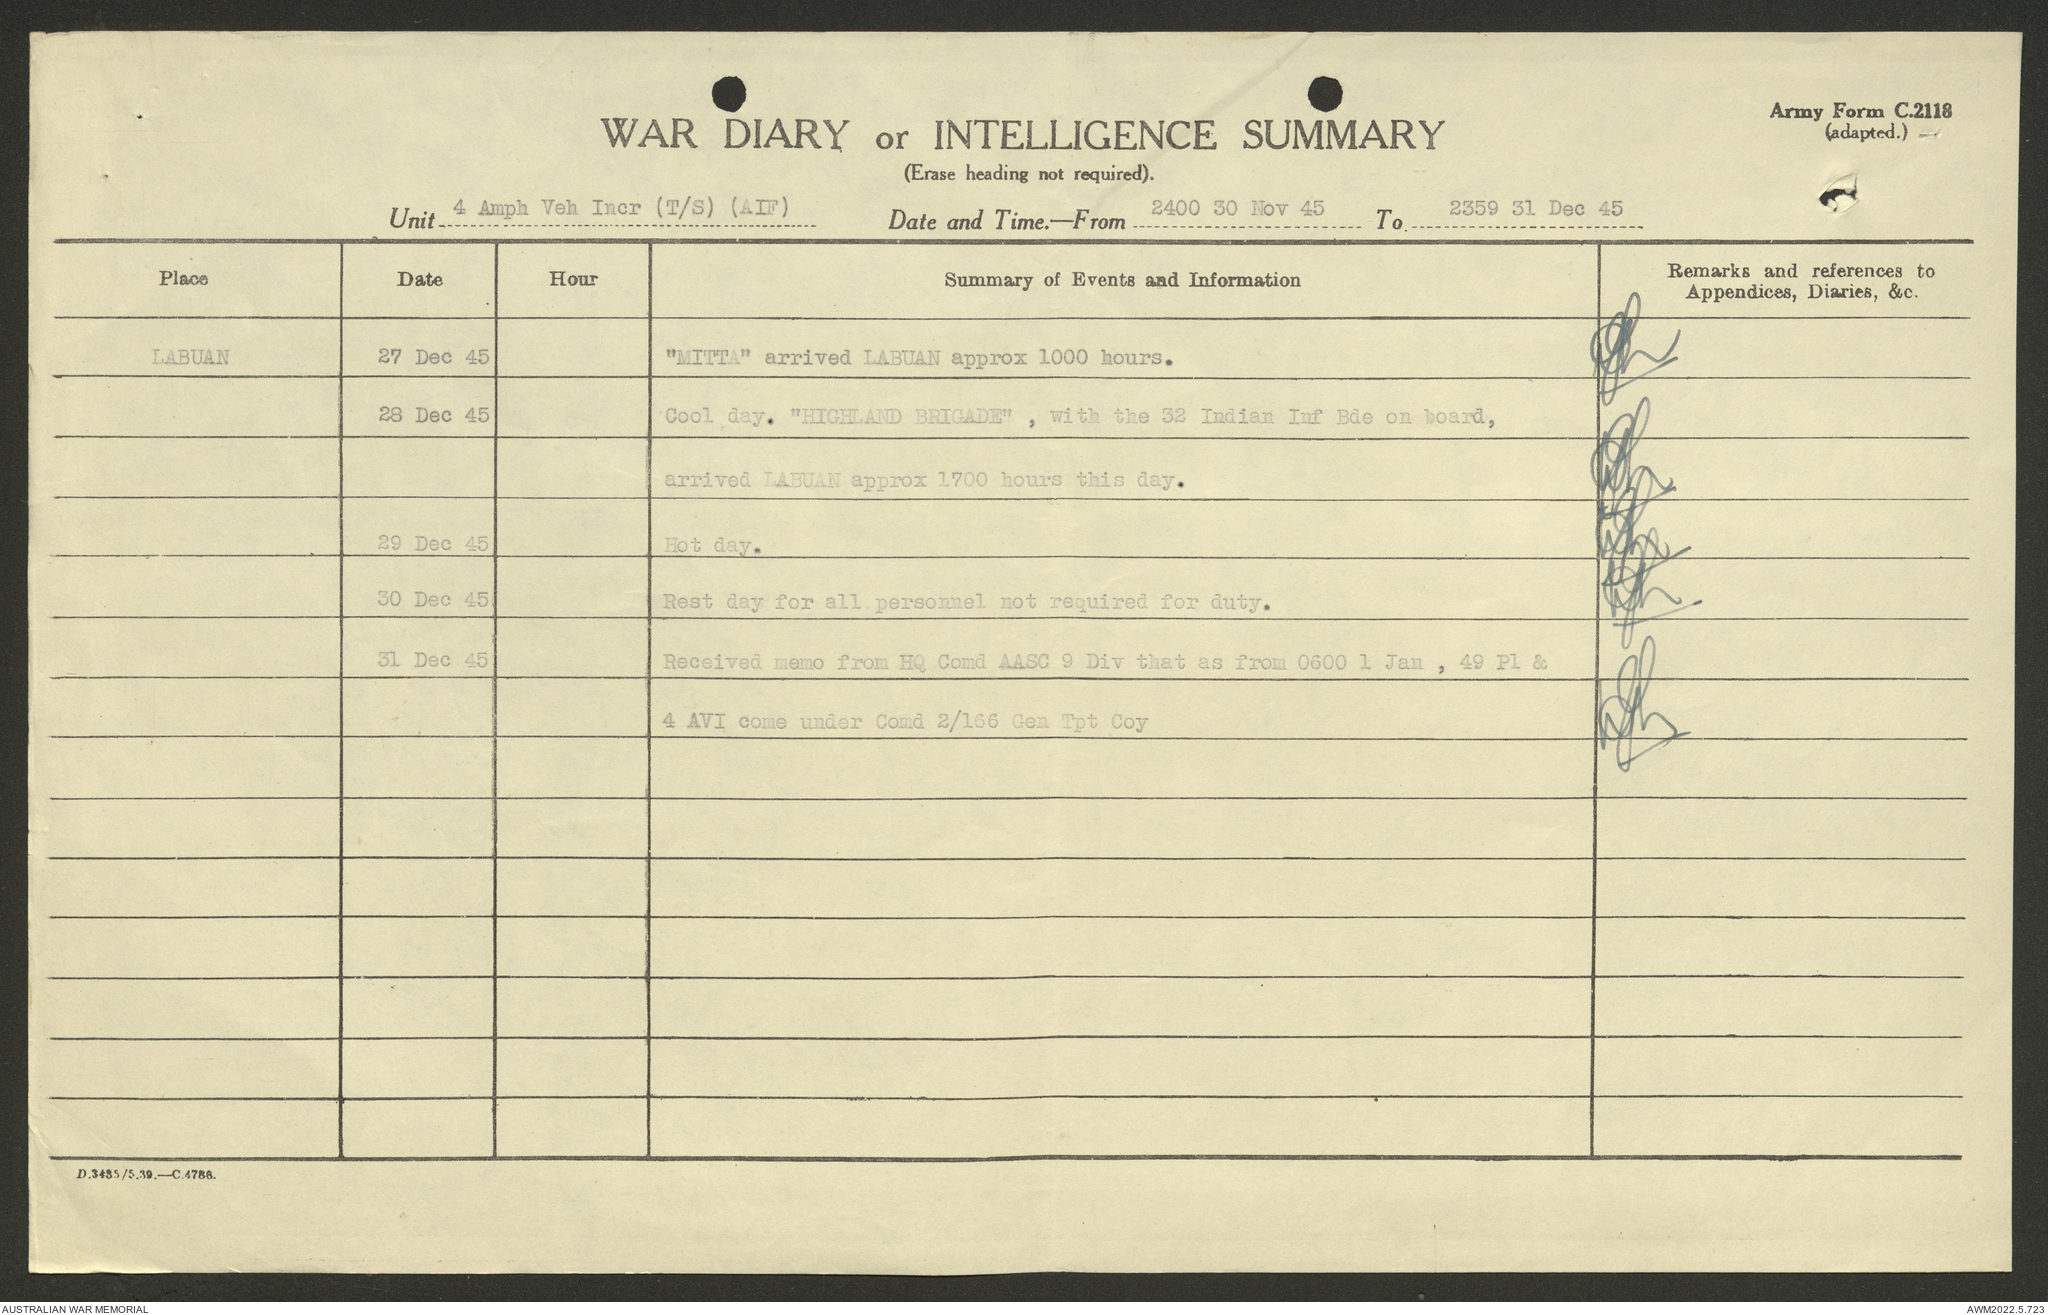 Army Form C.2118
(adapted.)
WAR DIARY or INTELLIGENCE SUMMARY
(Erase heading not required).
Unit 4 Amph Veh Incr (T/S) (AIF) Date and Time.—From 2400 30 Nov 45 To 2359 31 Dec 45
Place Date Hour Summary of Events and Information Remarks and references to
Appendices, Diaries, &c.
LABUAN 27 Dec 45 "MITTA" arrived LABUAN approx 1000 hours.
28 Dec 45 Cool day. "HIGHLAND BRIGADE" , with the 32 Indian Inf Bde on board,
arrived LABUAN approx 1700 hours this day.
29 Dec 45 Hot day.
30 Dec 45 Rest day for all personnel not required for duty.
31 Dec 45 Received memo from HQ Comd AASC 9 Div that as from 0600 1 Jan , 49 Pl &
4 AVI come under Comd 2/166 Gen Tpt Coy
D.3485/5.39.—C.4788.
AUSTRALIAN WAR MEMORIAL AWM2022.5.723